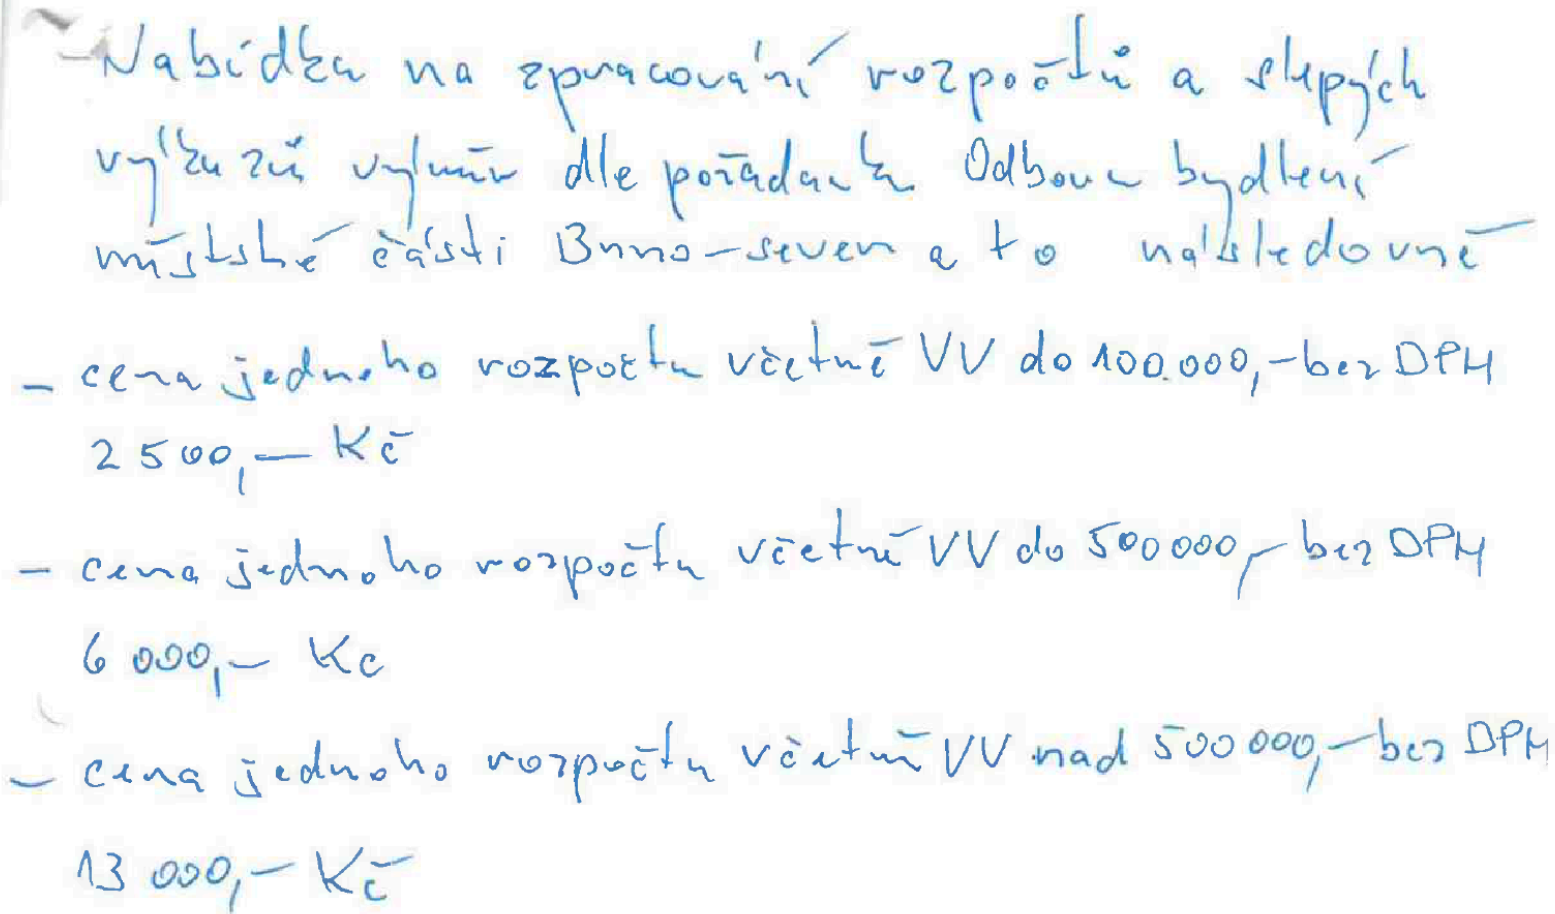 Nabídka na zpracování rozpočtů a slepých
výkazů výměr dle požadavku Odboru bydlení
městské části Brno-sever a to následovně
- cena jednoho rozpočtu včetně VV do 100.000,- bez DPH
2 500,- Kč
- cena jednoho rozpočtu včetně VV do 500 000,- bez DPH
6 000,- Kc
- cena jednoho rozpočtu včetně VV nad 500 000,- bez DPH
13 000,- Kč